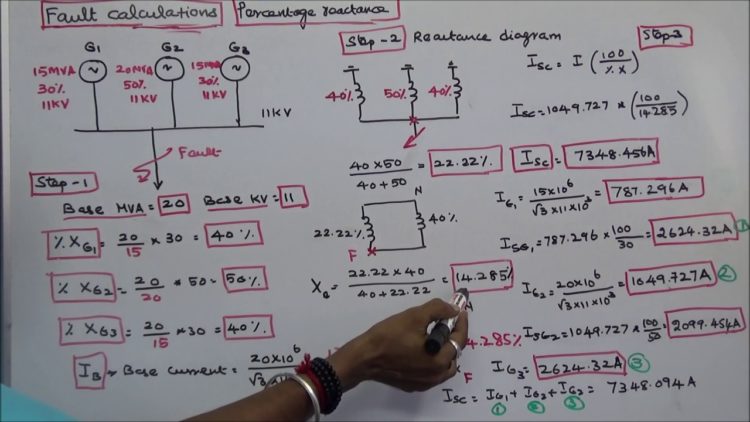 Fault calculations
Percentage reactance
G1 G2 G3
15MVA 20MVA 15MVA
30% 50% 30%
11KV 11KV 11KV
11KV
Fault
Step-1
Base MVA = 20 Base KV = 11
% XG1 = 20/15 × 30 = 40%
% XG2 = 20/20 * 50 = 50%
% XG3 = 20/15 × 30 = 40%
IB → Base current = 20×10⁶
Step-2 Reactance diagram
40% 50% 40%
40×50/40+50 = 22.22%
N
22.22% 40%
F
= 22.22×40/40+22.22 = 14.285%
4.285%
F
Step-3
ISC = I (100/%X)
ISC = 1049.727 * (100/14.285)
ISC = 7348.456A
IG1 = 15×10⁶/√3×11×10³ = 787.296A
ISG1 = 787.296 × 100/30 = 2624.32A ①
IG2 = 20×10⁶/√3×11×10³ = 1049.727A ②
ISG2 = 1049.727 × 100/50 = 2099.454A
IG3 = 2624.32A ③
ISC = IG1 + IG2 + IG2 = 7348.094A
① ② ③